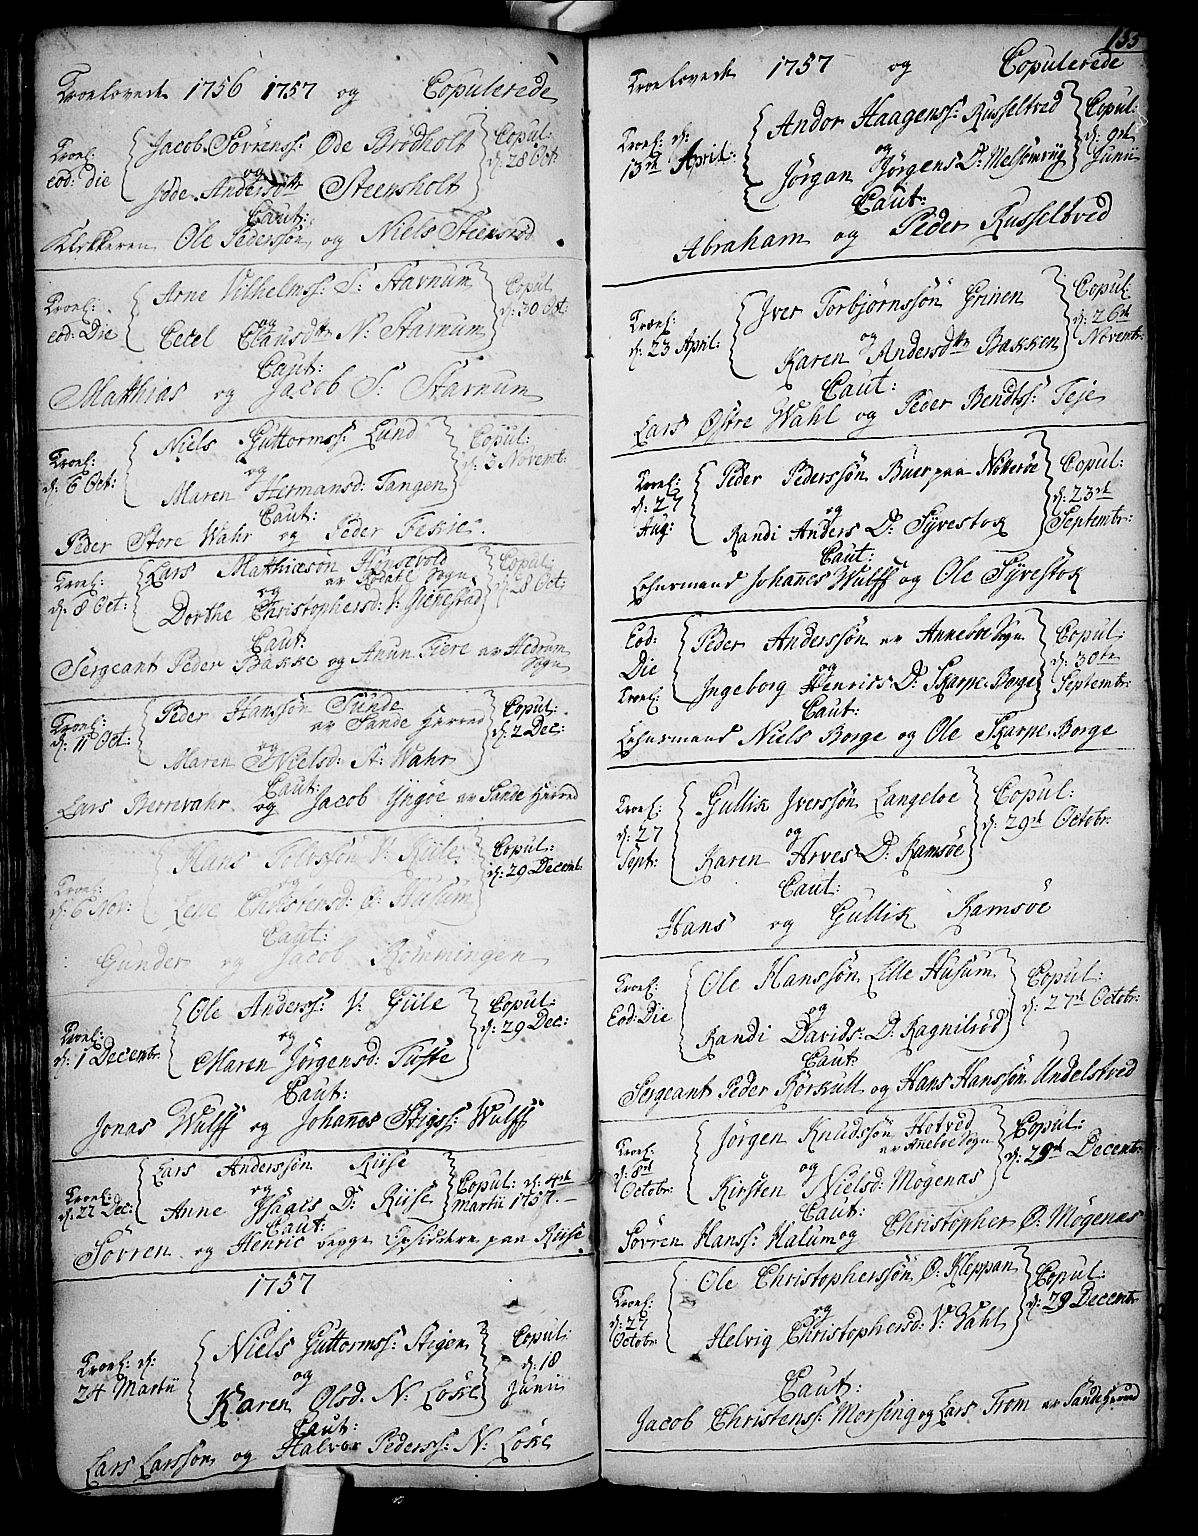 Troelovede 1756 1757 og Copulerede
Troel: eod: die
Jacob Sövrenss: Öde Brödholt
og
Jöde Andersdtr Steensholt
Copul: d: 28 Oct:
Caut:
Klokkeren Ole Pederssön og Niels Steensrod
Troel: eod: Die
Arne Vilhelmss: S: Stavnum
og
Cetel Clausdtr N: Stavnum
Copul d: 30 Oct:
Caut:
Matthias og Jacob S: Stavnum
Troel: d: 6 Oct:
Niels Guttormss: Lund
og
Maren Hermansd: Tangen
Copul: d: 3 Novemt:
Caut:
Peder Store Wahr og Peder Tekie
Troel: d: 8 Oct:
Lars Mathiesön Hönsevold
av Rodahl Sogn
og
Dorthe Christophersd: V: Gjennestad
Copul d: 28 Oct:
Caut:
Sergeant Peder Bakke og Anun Fiere av Hedrum
Sogn
Troel: d: 11 Oct:
Peder Hanssön Sunde
av Sande Herred
og
Maren Nielsd: A: Wahr
Copul: d: 2 Dec:
Caut:
Lars Berrevahr og Jacob Yngöe av Sande Herred
Troel: d: 6 Nov:
Hans V: Riile
og
Lene Christensd: Ö: Husum
Copul: d: 29 Decemb:
Caut:
Gunder og Jacob Römmingen
Troel: d: 1 Decembr
Ole Anderss: V: Giile
og
Maren Jörgensd: Tufte
Copul: d: 29 Dec:
Caut:
Jonas Wulff og Johanes Stigss: Wulff
Troel: d: 22 Dec:
Lars Anderssön Riise
og
Anne Isaacs D: Riise
Copul: d: 4de martii 1757.
Caut:
Sövren og Henric begge Opsiddere paa Riise
1757
Troel: d: 24 Martii
Niels Guttormss: Stigen
og
Karen Olsd. N: Löke
Copul: d: 18 Junii
Caut:
Lars Larssön og Halvor Pederss: N: Löke
155
Troelovede 1757 og Copulerede
Troel: d: 13de April:
Andor Haagenss: Russeltved
og
Jörgan Jörgens D: Melsomvig
Copul: d: 9de Junii
Caut:
Abraham og Peder Russeltved
Troel: d: 23 April:
Iver Torbjörnssön Grinen
og
Karen Andersdtr Bakken
Copul: d: 26de Novembr:
Caut:
Lars Östre Wahl og Peder Bendtss: Teje
Troel: d: 27 Aug:
Peder Pederssön Buer paa Nötteröe
og
Randi Anders D: Syrestok
Copul: d: 23de Septembr:
Caut:
Lehnsmand Johannes Wulff og Ole Syrestok
Eod: Die Troel:
Peder Anderssön av Anneböe Sogn
og
Ingeborg Henrics D: Skarpe-Borge
Copul: d: 30te Septembr:
Caut:
Lehnsmand Niels Borge og Ole Skarpe-Borge
Troel: d: 27 Sept:
Gullik Iverssön Langeloe
og
Karen Arves D: Ramsöe
Copul: d: 29de Octobr:
Caut:
Hans og Gullik Ramsöe
Troel: Eod: Die
Ole Hanssön Lille Husum
og
Randi Davids: D: Ragnilröd
Copul: d: 27de Octobr:
Caut
Sergeant Peder Körskull og Hans Hanssön Undelstved
Troel: d: 8de Octobr:
Jörgen Knudssön Hotved
av Aneboe Sogn
og
Kirsten Nielsd: Mögenas
Copul: d: 29de Decembr:
Caut:
Sövren Hanss: Halum og Christopher Ö: Mögenas
Troel: d: 27 Octobr:
Ole Christopherssön Ö: Kleppan
og
Helvig Christophersd: V: Vahl
Copul: d: 29 Decembr
Caut:
Jacob Christenss: Morsing og Lars From av Sandeherred